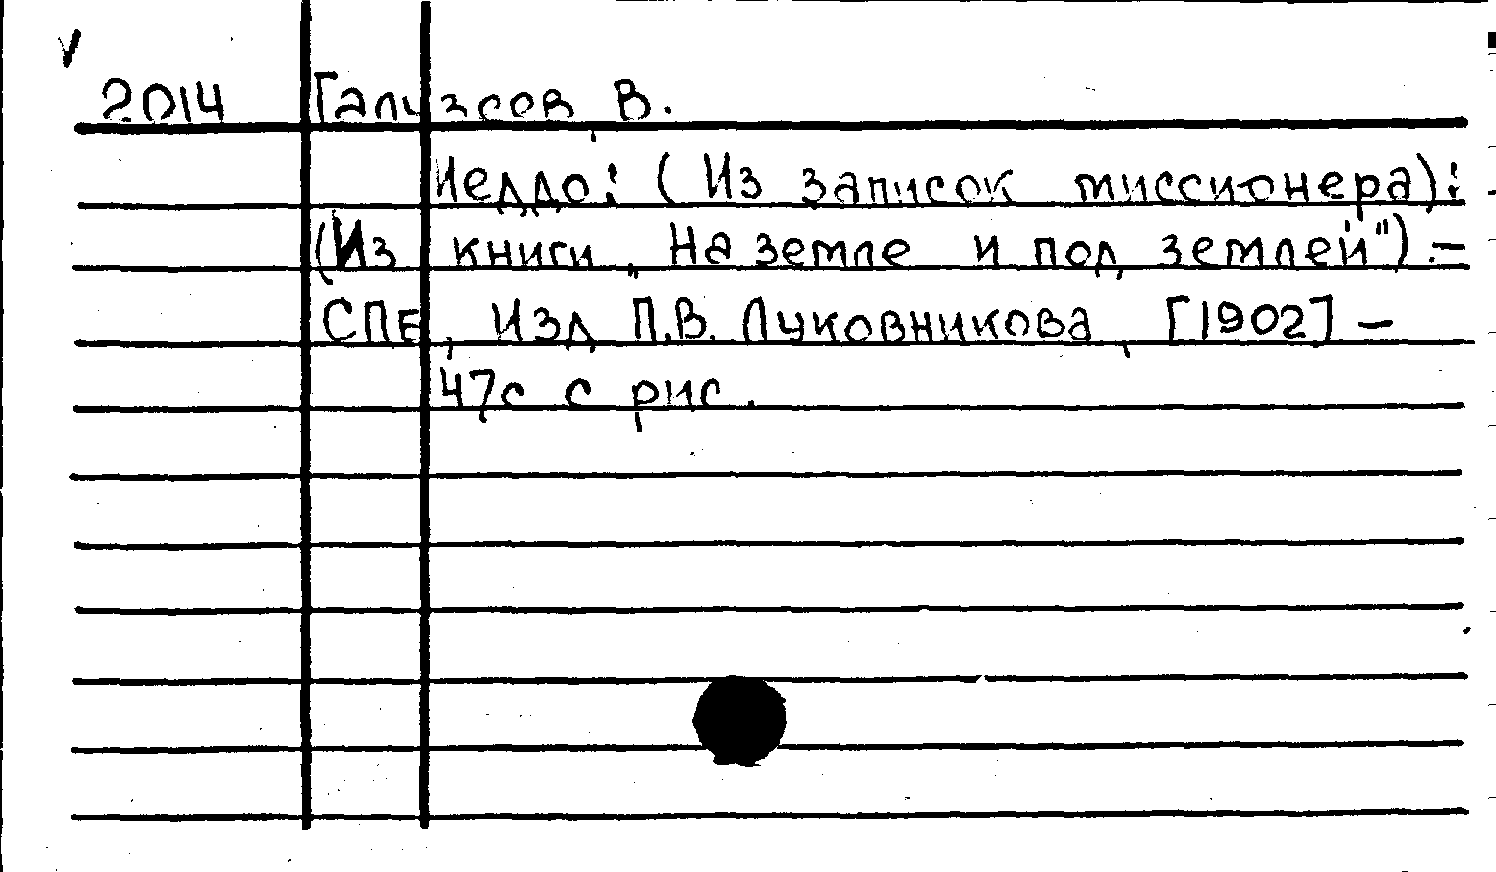 2014 Галузсов, В.
Иеддо: (Из записок миссионера):
(Из книги „На земле и под землей") . —
СПБ, Изд П.В. Луковникова, [1902] —
47с с рис.